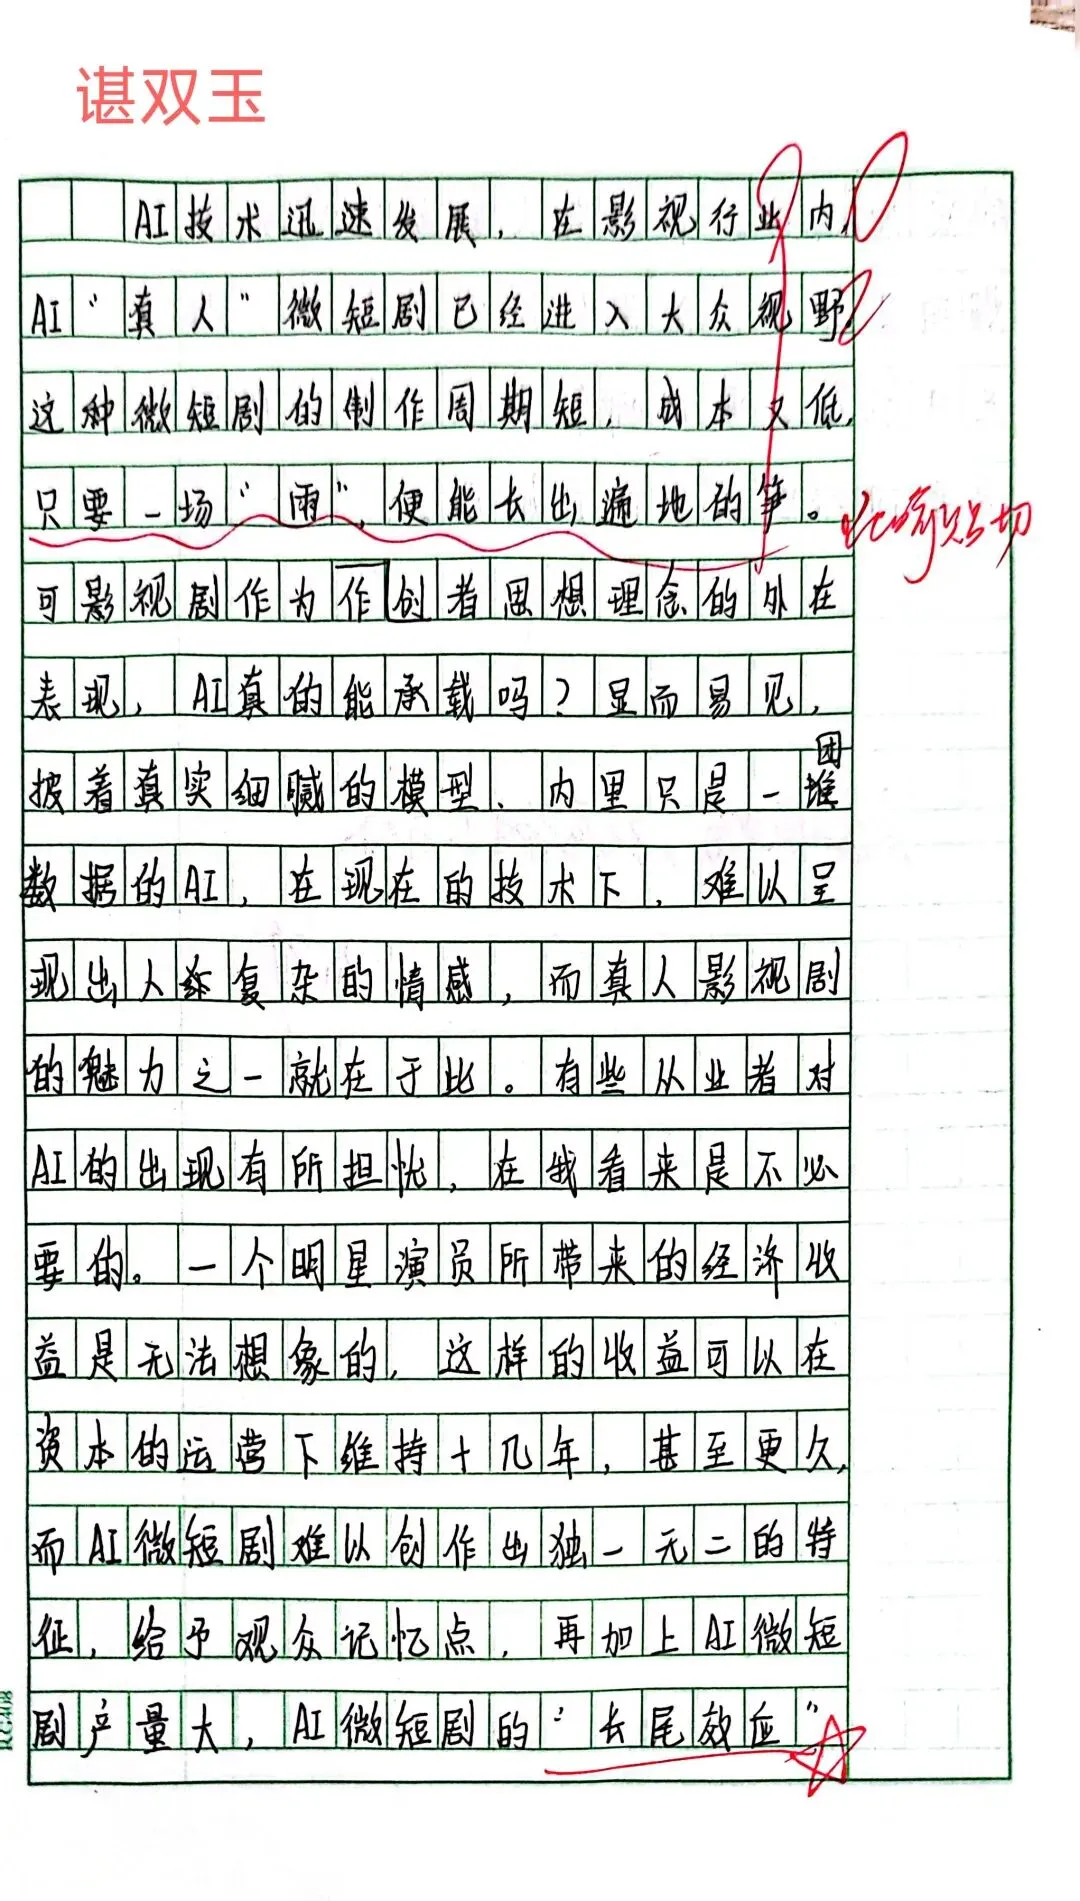 谌双玉
AI技术迅速发展，在影视行业内，
AI“真人”微短剧已经进入大众视野，
这种微短剧的制作周期短，成本又低，
只要一场“雨”，便能长出遍地的笋。
比喻贴切
可影视剧作为作创者思想理念的外在
表现，AI真的能承载吗？显而易见，
披着真实细腻的模型、内里只是一团
数据的AI，在现在的技术下，难以呈
现出人类复杂的情感，而真人影视剧
的魅力之一就在于此。有些从业者对
AI的出现有所担忧，在我看来是不必
要的。一个明星演员所带来的经济收
益是无法想象的，这样的收益可以在
资本的运营下维持十几年，甚至更久，
而AI微短剧难以创作出独一无二的特
征，给予观众记忆点，再加上AI微短
剧产量大，AI微短剧的“长尾效应”
RC408